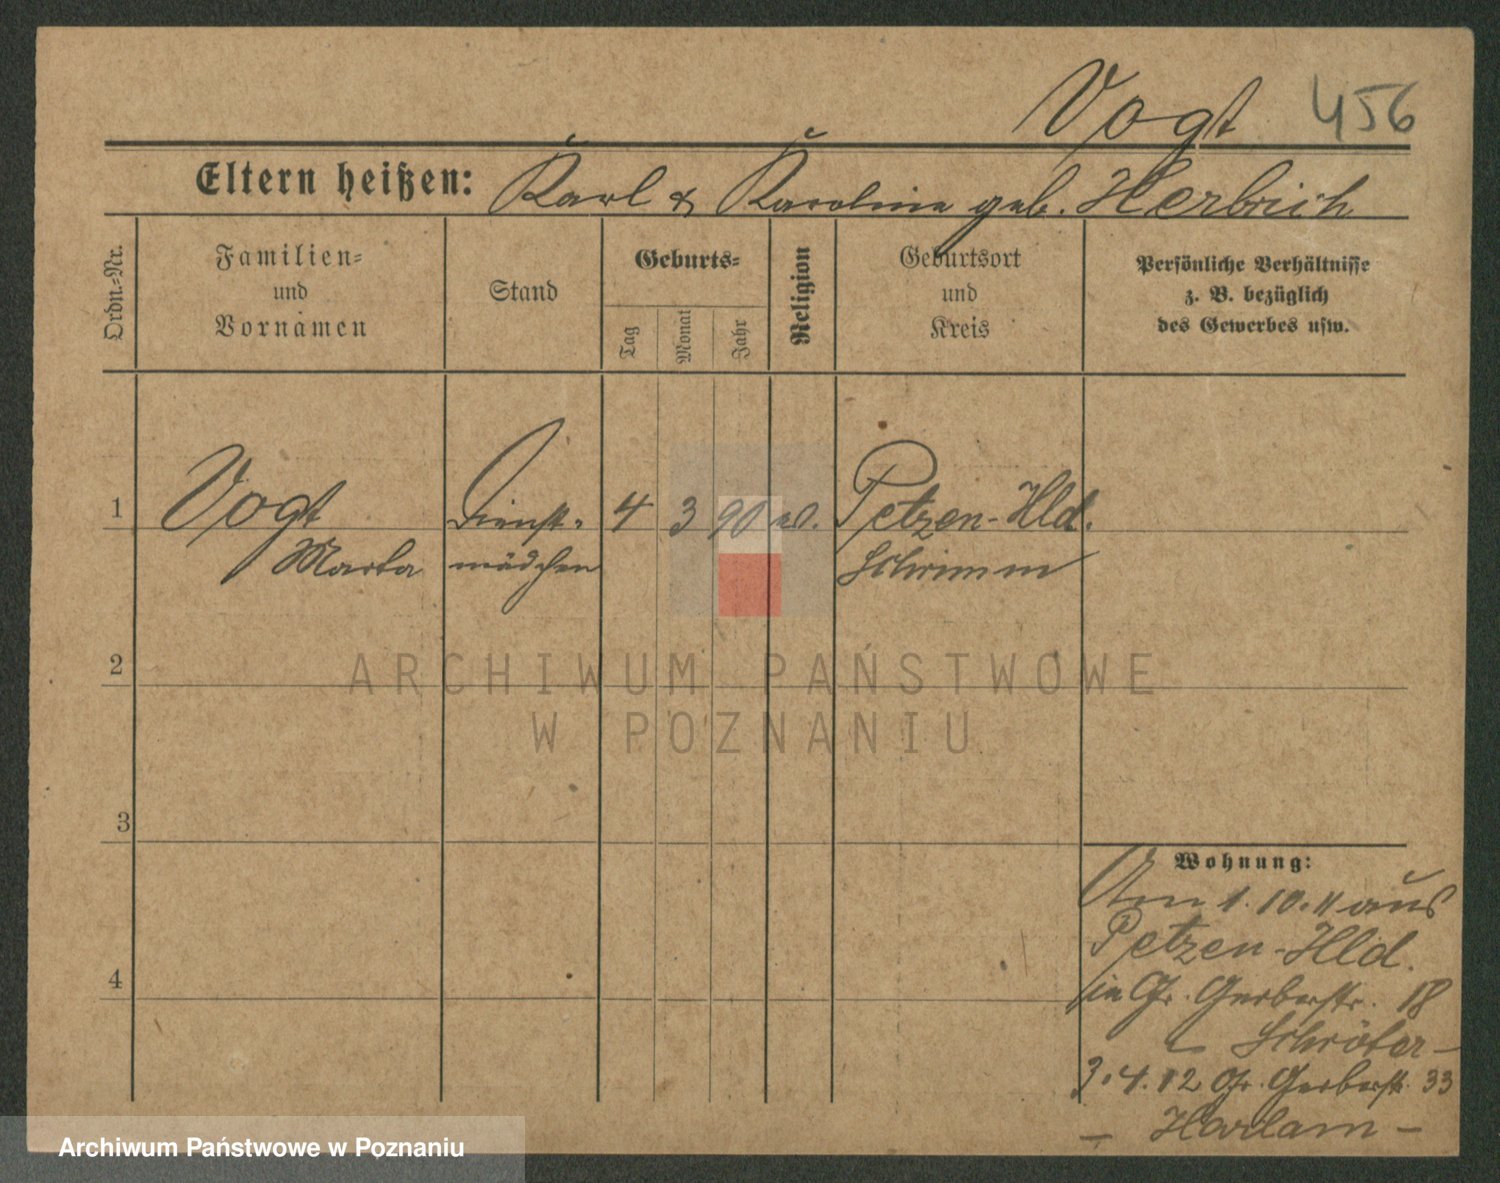 Vogt 456
Eltern heißen: Karl & Karoline geb. Herbrich
Ordn.-Nr.
Familien-
und
Vornamen
Stand
Geburts-
Tag
Monat
Jahr
Religion
Geburtsort
und
Kreis
Persönliche Verhältnisse
z. B. bezüglich
des Gewerbes usw.
1 Vogt Dienst- 4 3 90 ev. Petzen-Hld.
Marta mädchen Schrimm
2
3
4
Wohnung:
Am 1.10.11 aus
Petzen-Hld.
in Gr. Gerberstr. 18
Schröter -
3.4.12 Gr. Gerberstr. 33
- Harlam -
ARCHIWUM PAŃSTWOWE
W POZNANIU
Archiwum Państwowe w Poznaniu